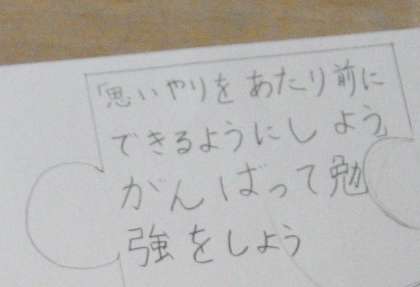 「思いやりをあたり前に
できるようにしよう
がんばって勉
強をしよう